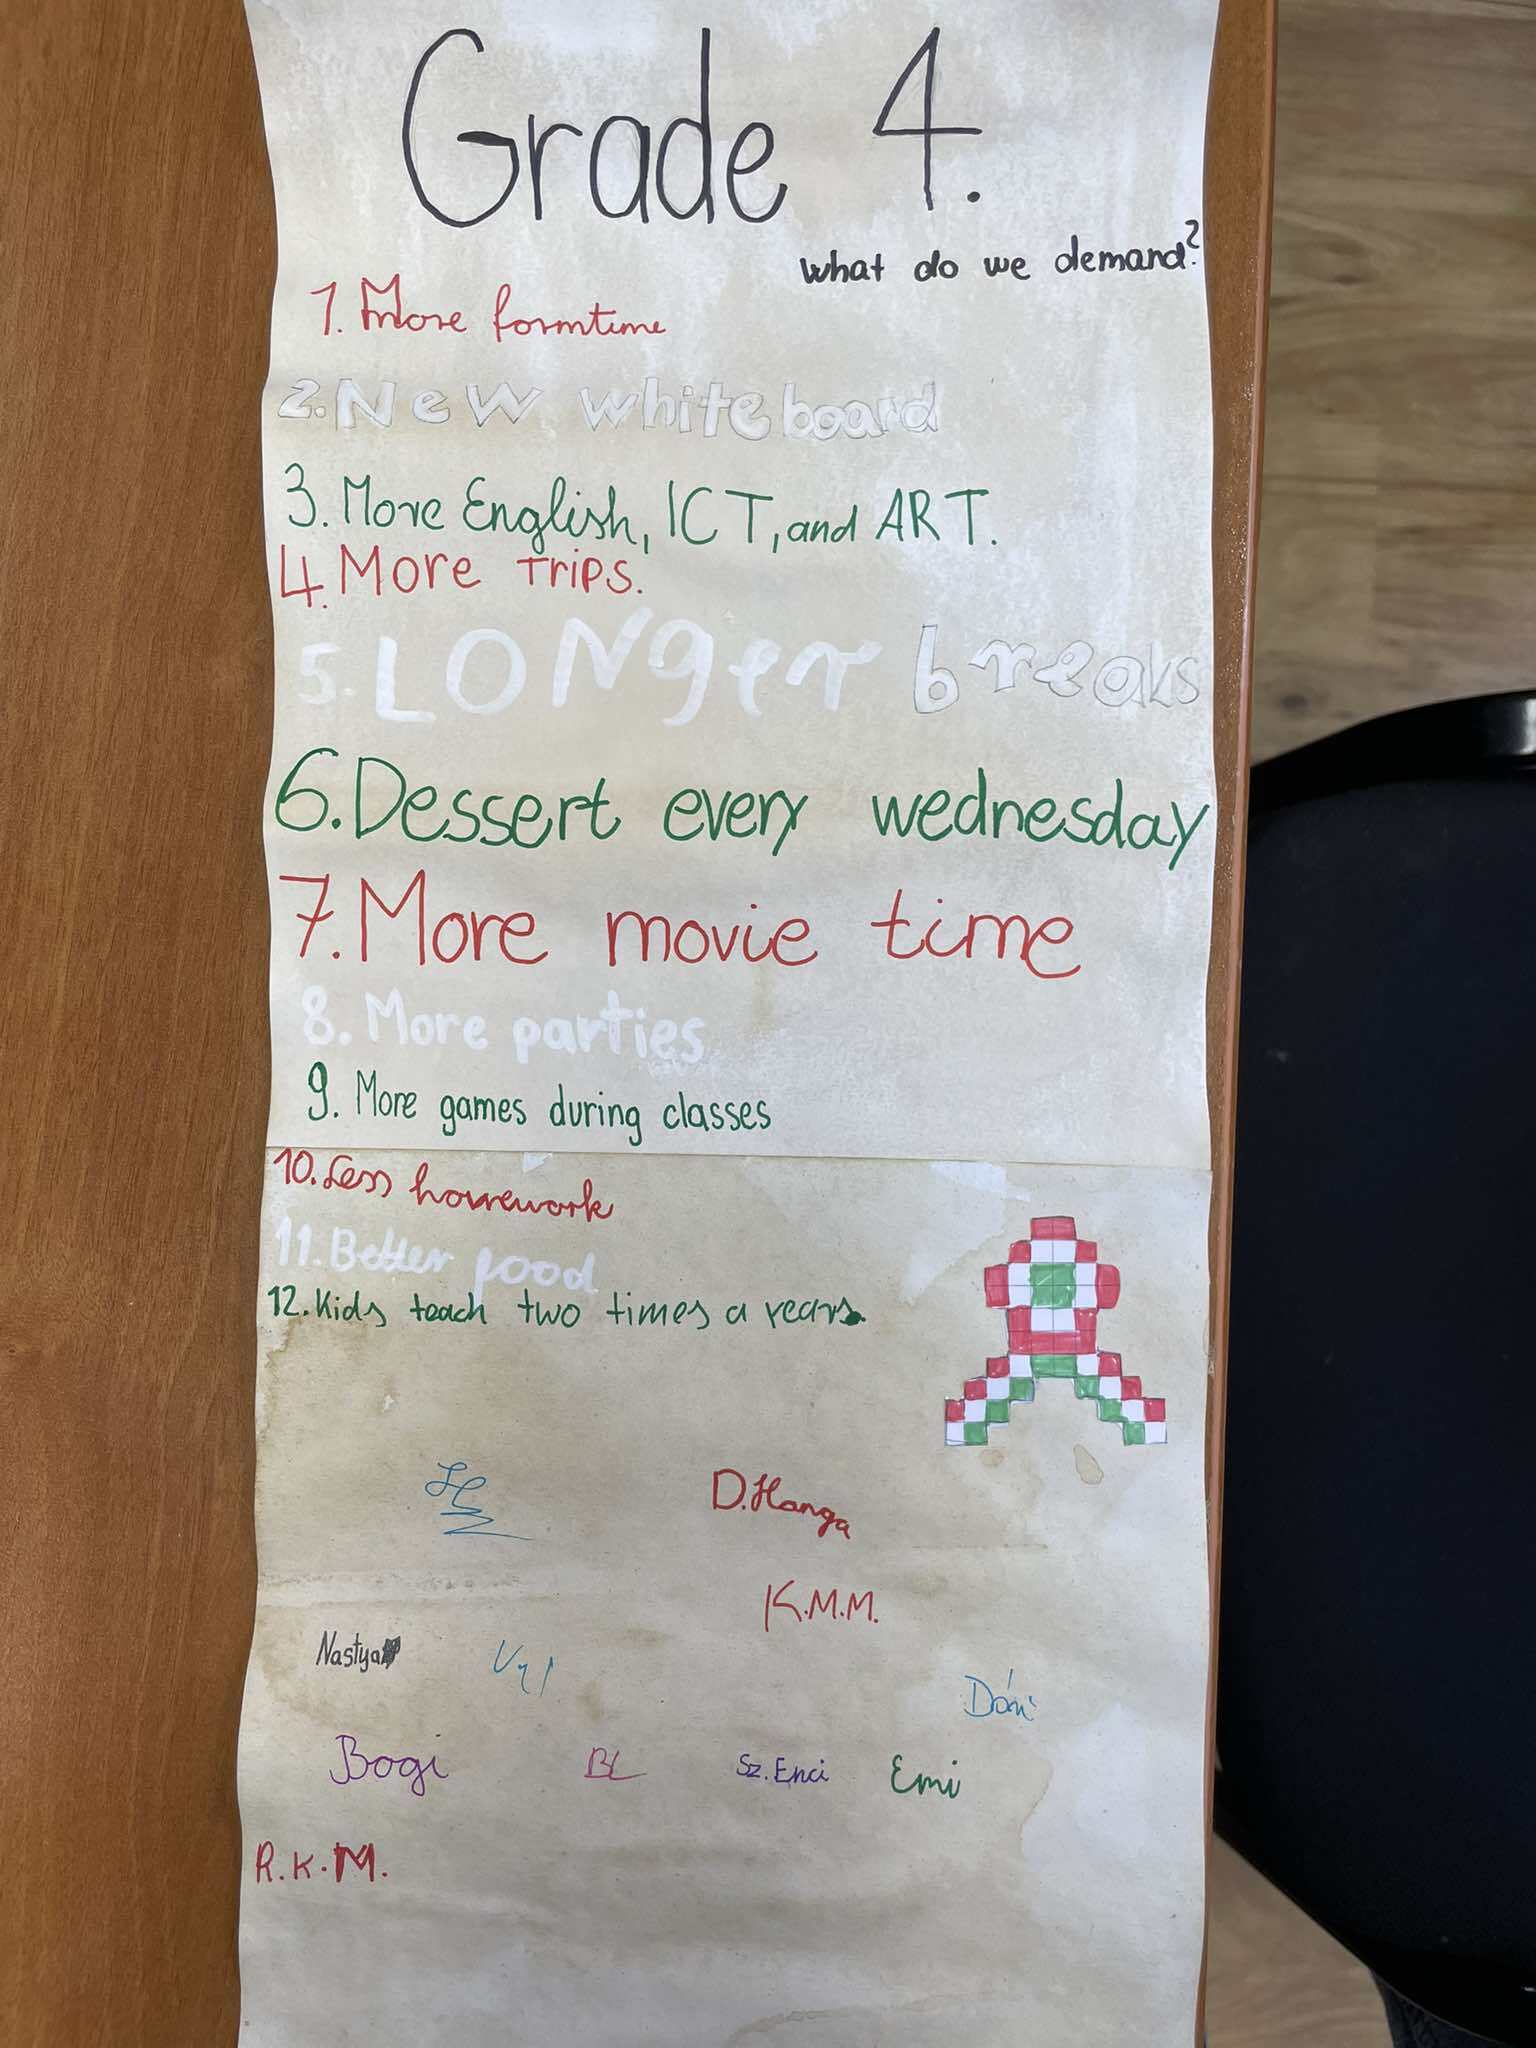 Grade 4.
What do we demand?
1. More formtime
2. New whiteboard
3. More English, ICT, and ART.
4. More Trips.
5. LONger breaks
6. Dessert every wednesday
7. More movie time
8. More parties
9. More games during classes
10. Less homework
11. Better food
12. Kids teach two times a years.
D. Hanga
K.M.M.
Nastya
Dóri
Bogi BL Sz. Enci Emi
R.K.M.